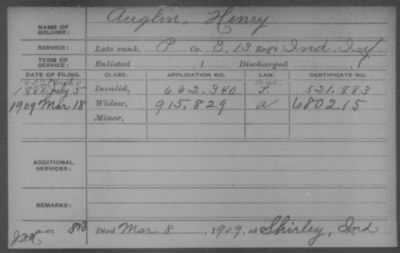 NAME OF SOLDIER: Auglin, Henry
SERVICE: Late rank, P Co. E, 13 Reg't Ind. Inf
TERM OF SERVICE: Enlisted , 1 Discharged
DATE OF FILING. CLASS. APPLICATION NO. LAW. CERTIFICATE NO.
1888 July 5 Invalid, 662.340 F. 521.883
1909 Mar 18 Widow, 915.829 a 680215
Minor,
ADDITIONAL SERVICES:
REMARKS:
Died Mar 8 1909, at Shirley, Ind